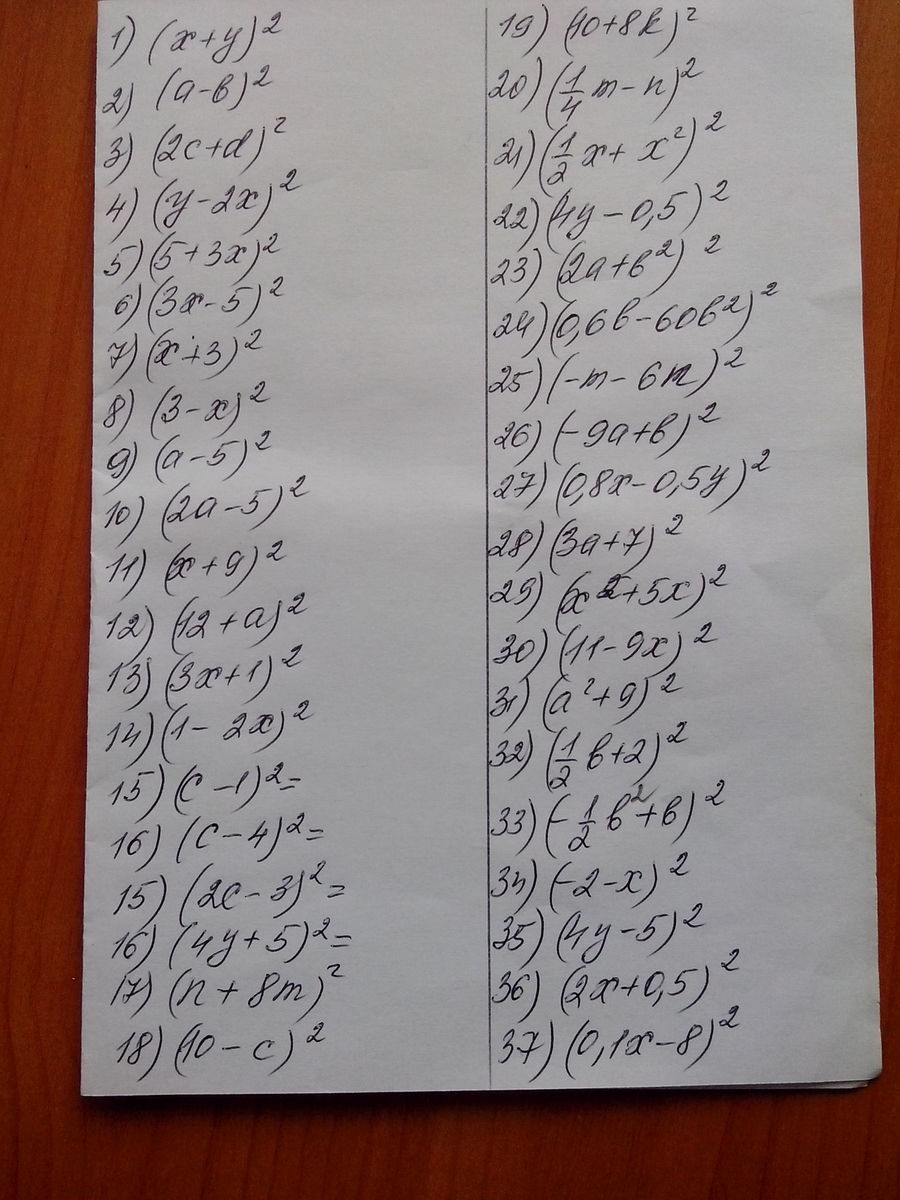 1) (x+y)²
2) (a-в)²
3) (2c+d)²
4) (y-2x)²
5) (5+3x)²
6) (3x-5)²
7) (x+3)²
8) (3-x)²
9) (a-5)²
10) (2a-5)²
11) (x+9)²
12) (12+a)²
13) (3x+1)²
14) (1-2x)²
15) (c-1)²=
16) (c-4)²=
15) (2c-3)²=
16) (4y+5)²=
17) (n+8m)²
18) (10-c)²
19) (10+8k)²
20) (1/4 m-n)²
21) (1/2 x+x²)²
22) (4y-0,5)²
23) (2a+в²)²
24) (0,6в-60в²)²
25) (-m-6m)²
26) (-9a+в)²
27) (0,8x-0,5y)²
28) (3a+7)²
29) (x²+5x)²
30) (11-9x)²
31) (a²+9)²
32) (1/2 в+2)²
33) (-1/2 в²+в)²
34) (-2-x)²
35) (4y-5)²
36) (2x+0,5)²
37) (0,1x-8)²